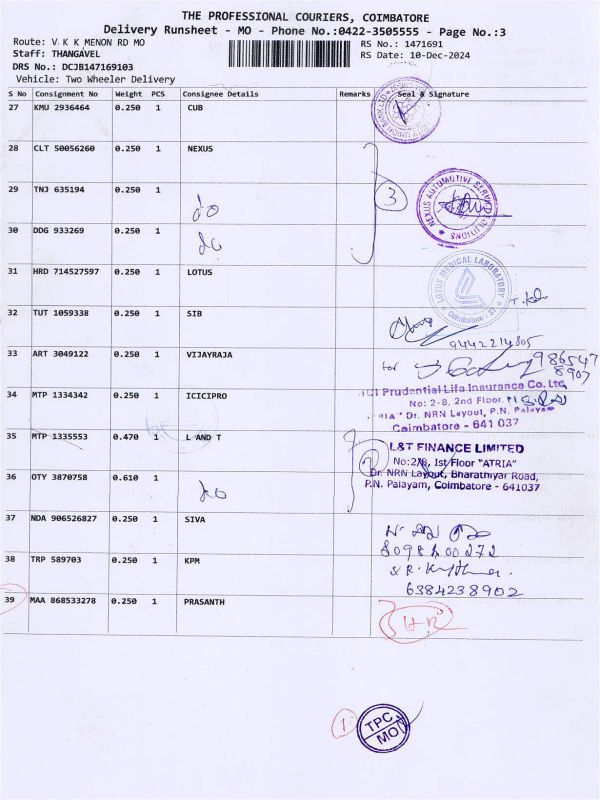 THE PROFESSIONAL COURIERS, COIMBATORE
Delivery Runsheet - MO - Phone No.:0422-3505555 - Page No.:3
Route: V K K MENON RD MO
Staff: THANGAVEL
DRS No.: DCJB147169103
Vehicle: Two Wheeler Delivery
RS No.: 1471691
RS Date: 10-Dec-2024
S No Consignment No Weight PCS Consignee Details Remarks Seal & Signature
27 KMU 2936464 0.250 1 CUB
28 CLT 50056260 0.250 1 NEXUS
3
NEXUS AUTOMOTIVE SERVICE SOLUTIONS
29 TNJ 635194 0.250 1 do
30 DDG 933269 0.250 1 do
31 HRD 714527597 0.250 1 LOTUS
LOTUS MEDICAL LABORATORY
Coimbatore - 37
32 TUT 1059338 0.250 1 SIB
9442214305
33 ART 3049122 0.250 1 VIJAYRAJA
for
986547
8907
34 MTP 1334342 0.250 1 ICICIPRO
ICI Prudential Life Insurance Co. Ltd,
No: 2-8, 2nd Floor,
"RIA" Dr. NRN Layout, P.N. Palayam
Coimbatore - 641 037
35 MTP 1335553 0.470 1 L AND T
2
L&T FINANCE LIMITED
No:2/8, Ist Floor "ATRIA"
Dr. NRN Layout, Bharathiyar Road,
P.N. Palayam, Coimbatore - 641037
36 OTY 3870758 0.610 1 do
37 NDA 906526827 0.250 1 SIVA
8098400272
38 TRP 589703 0.250 1 KPM
6384238902
39 MAA 868533278 0.250 1 PRASANTH
1
TPC
MO